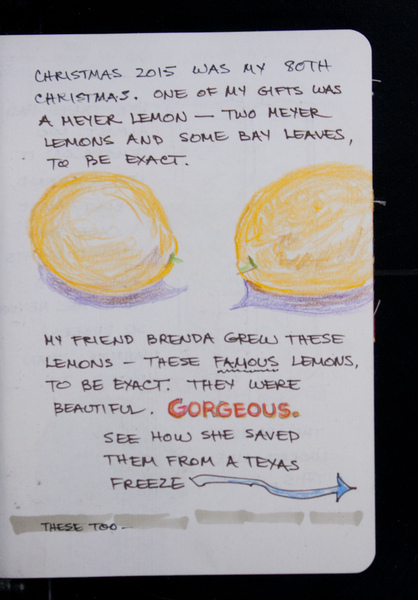 CHRISTMAS 2015 WAS MY 80TH
CHRISTMAS. ONE OF MY GIFTS WAS
A MEYER LEMON — TWO MEYER
LEMONS AND SOME BAY LEAVES,
TO BE EXACT.
MY FRIEND BRENDA GREW THESE
LEMONS — THESE FAMOUS LEMONS,
TO BE EXACT. THEY WERE
BEAUTIFUL. GORGEOUS.
SEE HOW SHE SAVED
THEM FROM A TEXAS
FREEZE
THESE TOO —